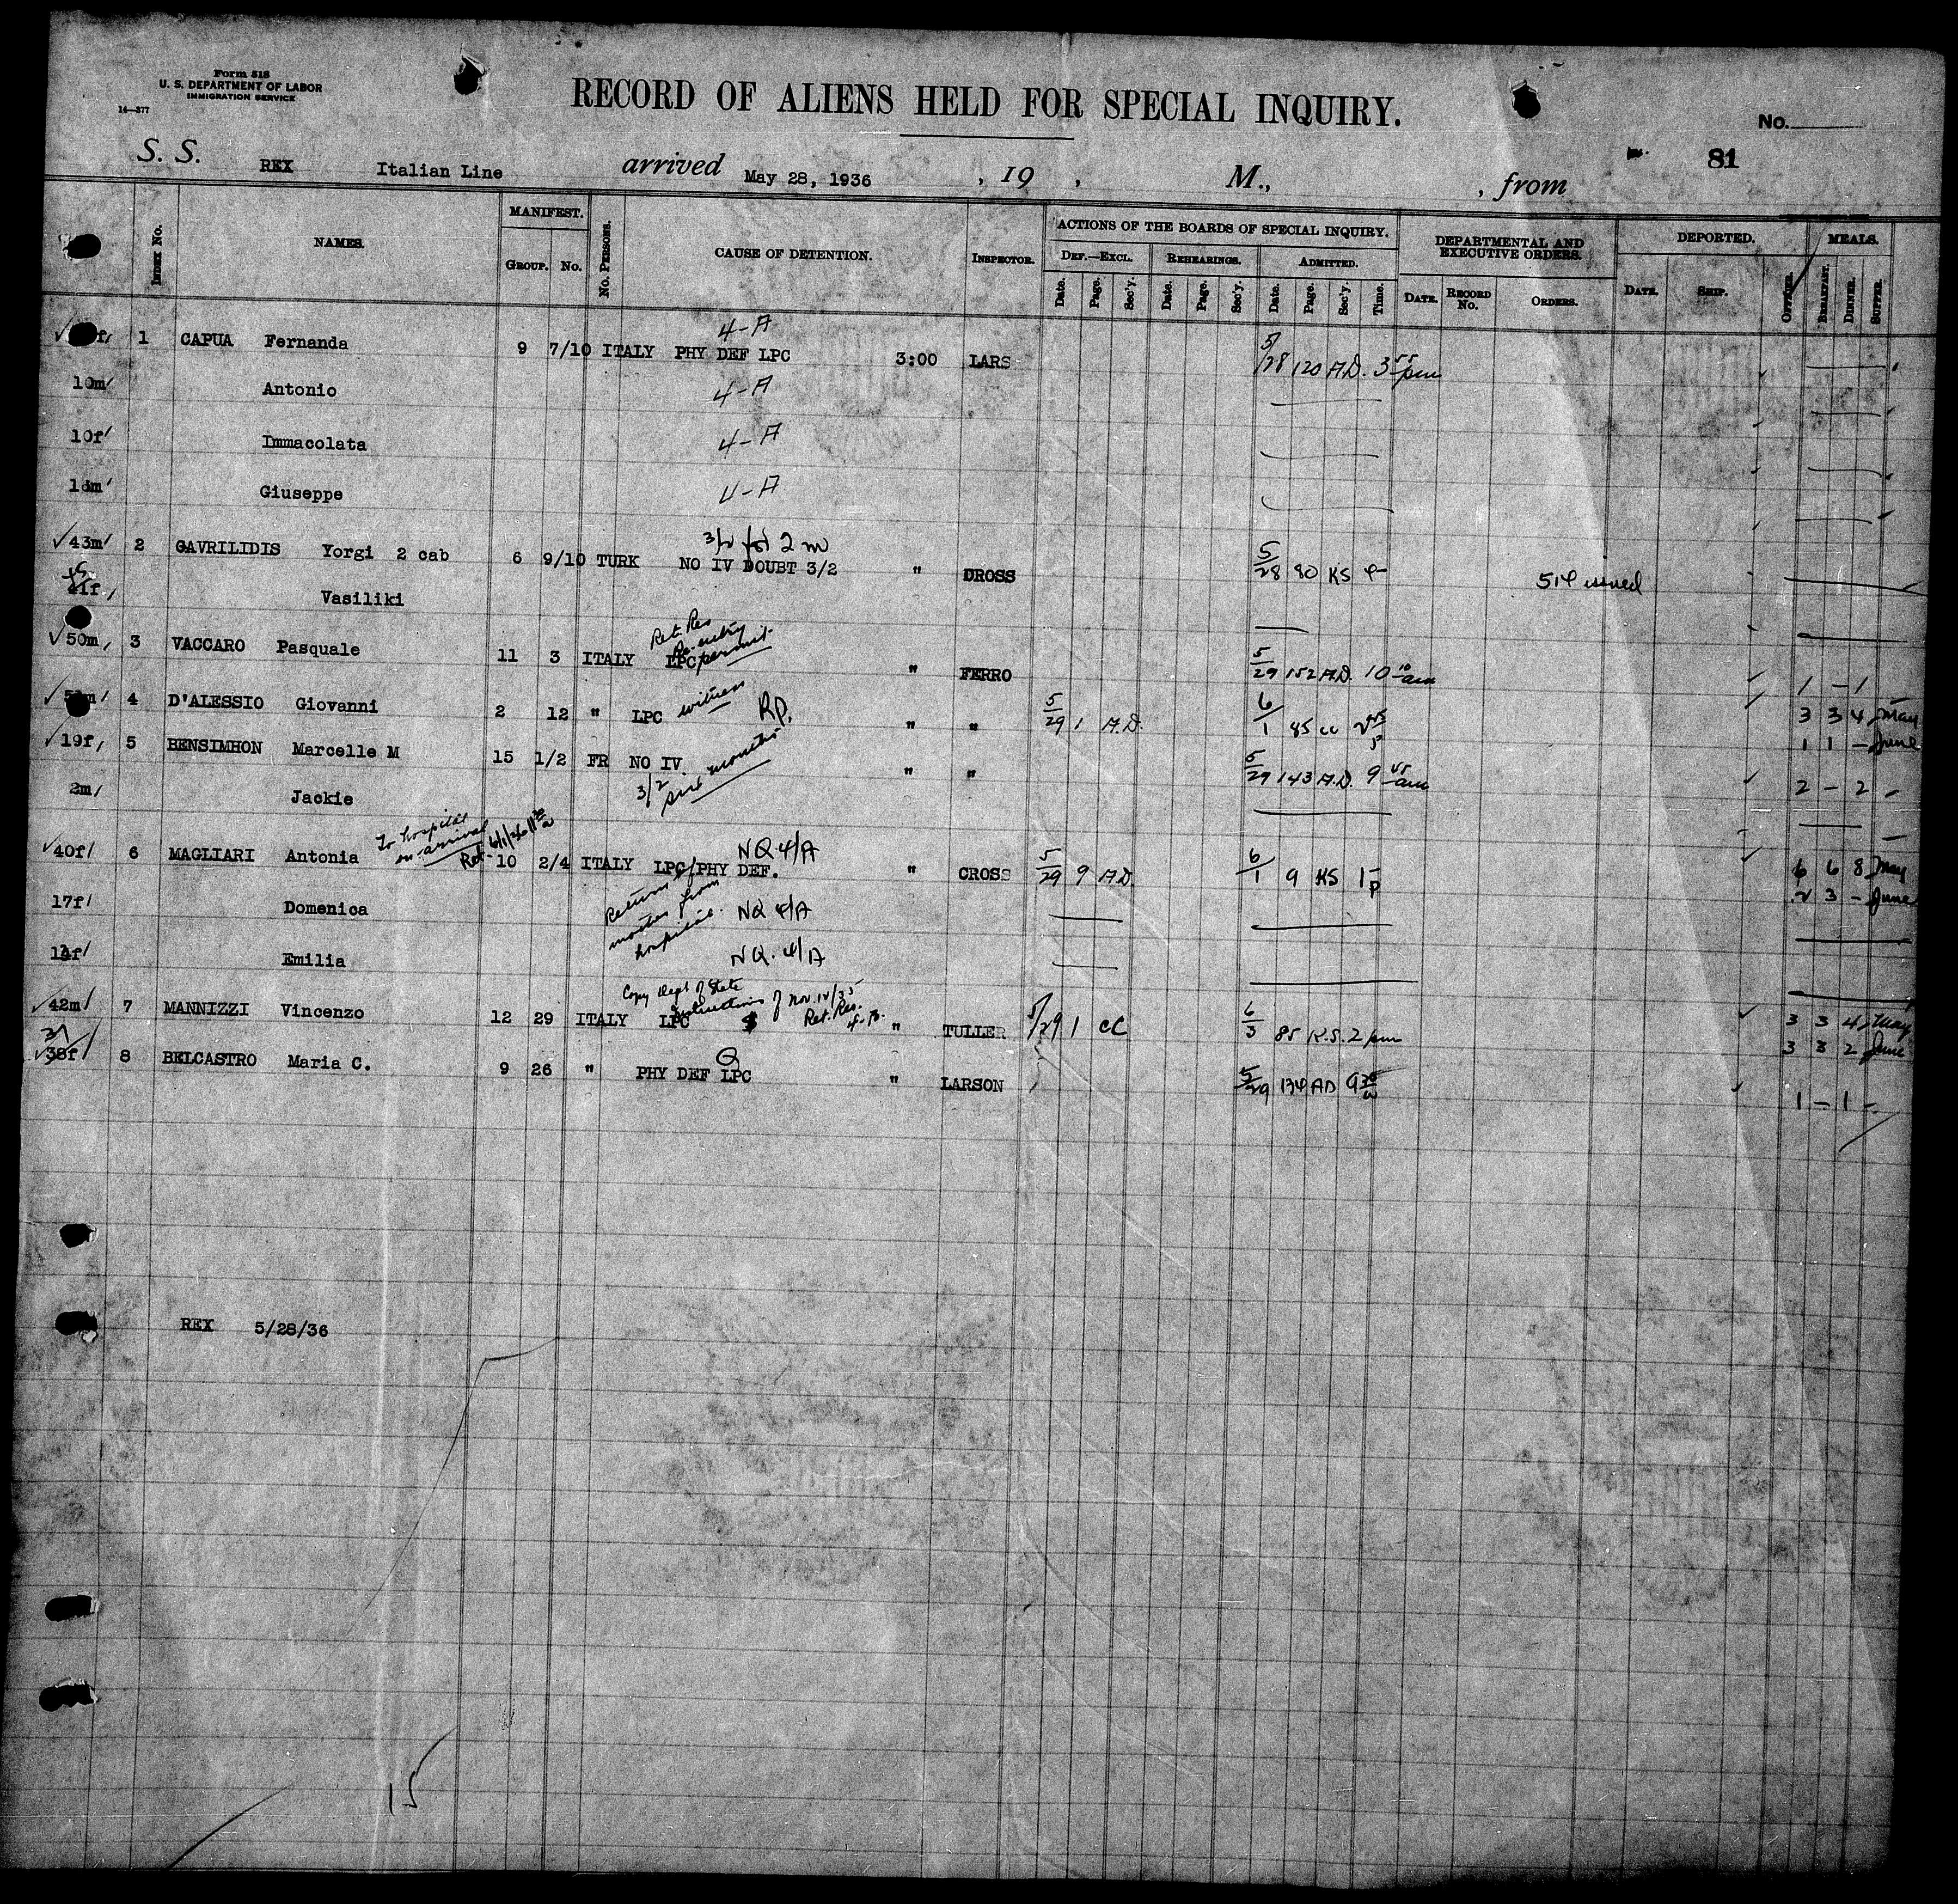 Form 518
U. S. DEPARTMENT OF LABOR
IMMIGRATION SERVICE
14—377
RECORD OF ALIENS HELD FOR SPECIAL INQUIRY.
No.
81
S. S. REX Italian Line arrived May 28, 1936 , 19 , M., , from
Index No. NAMES. MANIFEST. Group. No. No. Persons. CAUSE OF DETENTION. Inspector. ACTIONS OF THE BOARDS OF SPECIAL INQUIRY. Def.—Excl. Date. Page. Sec'y. Rehearings. Date. Page. Sec'y. Admitted. Date. Page. Sec'y. Time. DEPARTMENTAL AND EXECUTIVE ORDERS. Date. Record No. Orders. DEPORTED. Date. Ship. Officer. MEALS. Breakfast. Dinner. Supper.
4-A
1 CAPUA Fernanda 9 7/10 ITALY PHY DEF LPC 3:00 LARS 5/28 120 A.D. 3 55 pm
10m Antonio 4-A
10f Immacolata 4-A
Giuseppe 4-A
3/2 for 2 m
43m 2 GAVRILIDIS Yorgi 2 cab 6 9/10 TURK NO IV DOUBT 3/2 " DROSS 5/28 80 KS 514 issued
41f Vasiliki
Ret. Res
Re-entry
50m 3 VACCARO Pasquale 11 3 ITALY LPC permit " FERRO 5/29 152 A.D. 10 10 am 1 - 1 -
4 D'ALESSIO Giovanni 2 12 " LPC witness Rp. " " 5/29 1 A.D. 6/1 85 cc 2 45 p 3 3 4 May
1 1 - June
19f 5 BENSIMHON Marcelle M 15 1/2 FR NO IV " " 5/29 143 A.D. 9 45 am 2 - 2 -
3/2 six months
2m Jackie
To hospital
on arrival
Ret. 6/1/36
40f 6 MAGLIARI Antonia 10 2/4 ITALY LPC/PHY DEF. NQ 4/A " CROSS 5/29 9 A.D. 6/1 9 KS 1 p 6 6 8 May
2 3 - June
Return of
mother from
hospital.
17f Domenica NQ 4/A
Emilia NQ. 4/A
Copy Dept of State
Instructions of Nov. 14/35
Ret. Res.
4-B.
42m 7 MANNIZZI Vincenzo 12 29 ITALY LPC " TULLER 5/29 1 CC 6/3 85 K.S. 2 pm 3 3 4 May
3 3 2 June
37
38f 8 BELCASTRO Maria C. 9 26 " PHY DEF LPC Q " LARSON 5/29 134 AD 9 30 a 1 - 1 -
REX 5/28/36
15